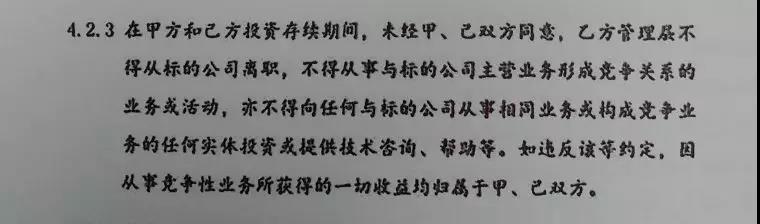 4.2.3 在甲方和己方投资存续期间，未经甲、己双方同意，乙方管理层不
得从标的公司离职，不得从事与标的公司主营业务形成竞争关系的
业务或活动，亦不得向任何与标的公司从事相同业务或构成竞争业
务的任何实体投资或提供技术咨询、帮助等。如违反该等约定，因
从事竞争性业务所获得的一切收益均归属于甲、己双方。